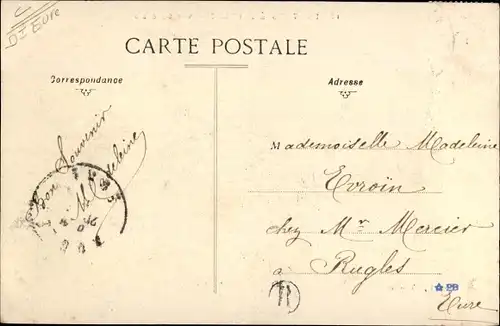 D I Eure
CARTE POSTALE
Correspondance
Adresse
Bon Souvenir
M. Madeleine
Mademoiselle Madeleine
Evroïn
chez Mr Mercier
a Rugles
PB
Eure